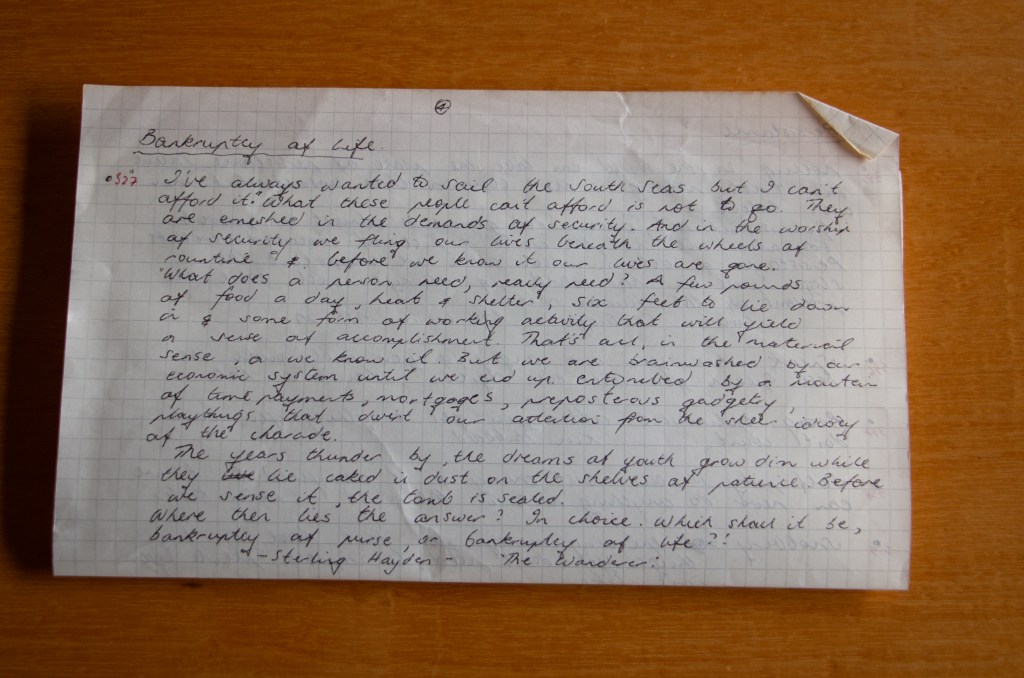 4
Bankruptcy of Life.
327 I've always wanted to sail the south seas but I can't
afford it." What these people can't afford is not to go. They
are emeshed in the demands of security. And in the worship
of security we fling our lives beneath the wheels of
rountine & before we know it our lives are gone.
What does a person need, really need? A few pounds
of food a day, heat & shelter, six feet to lie down
in & some form of working activity that will yield
a sense of accomplishment. That's all, in the material
sense, a we know it. But we are brainwashed by our
economic system until we end up entombed by a
of time payments, mortgages, preposterous gadgetry,
playthings that divert our attention from the sheer idiocy
of the charade.
The years thunder by, the dreams of youth grow dim while
they lie caked in dust on the shelves of patience. Before
we sense it, the tomb is sealed.
Where then lies the answer? In choice. Which shall it be,
bankruptcy of purse, or bankruptcy of life?!
"-Sterling Hayden- 'The Wanderer.'